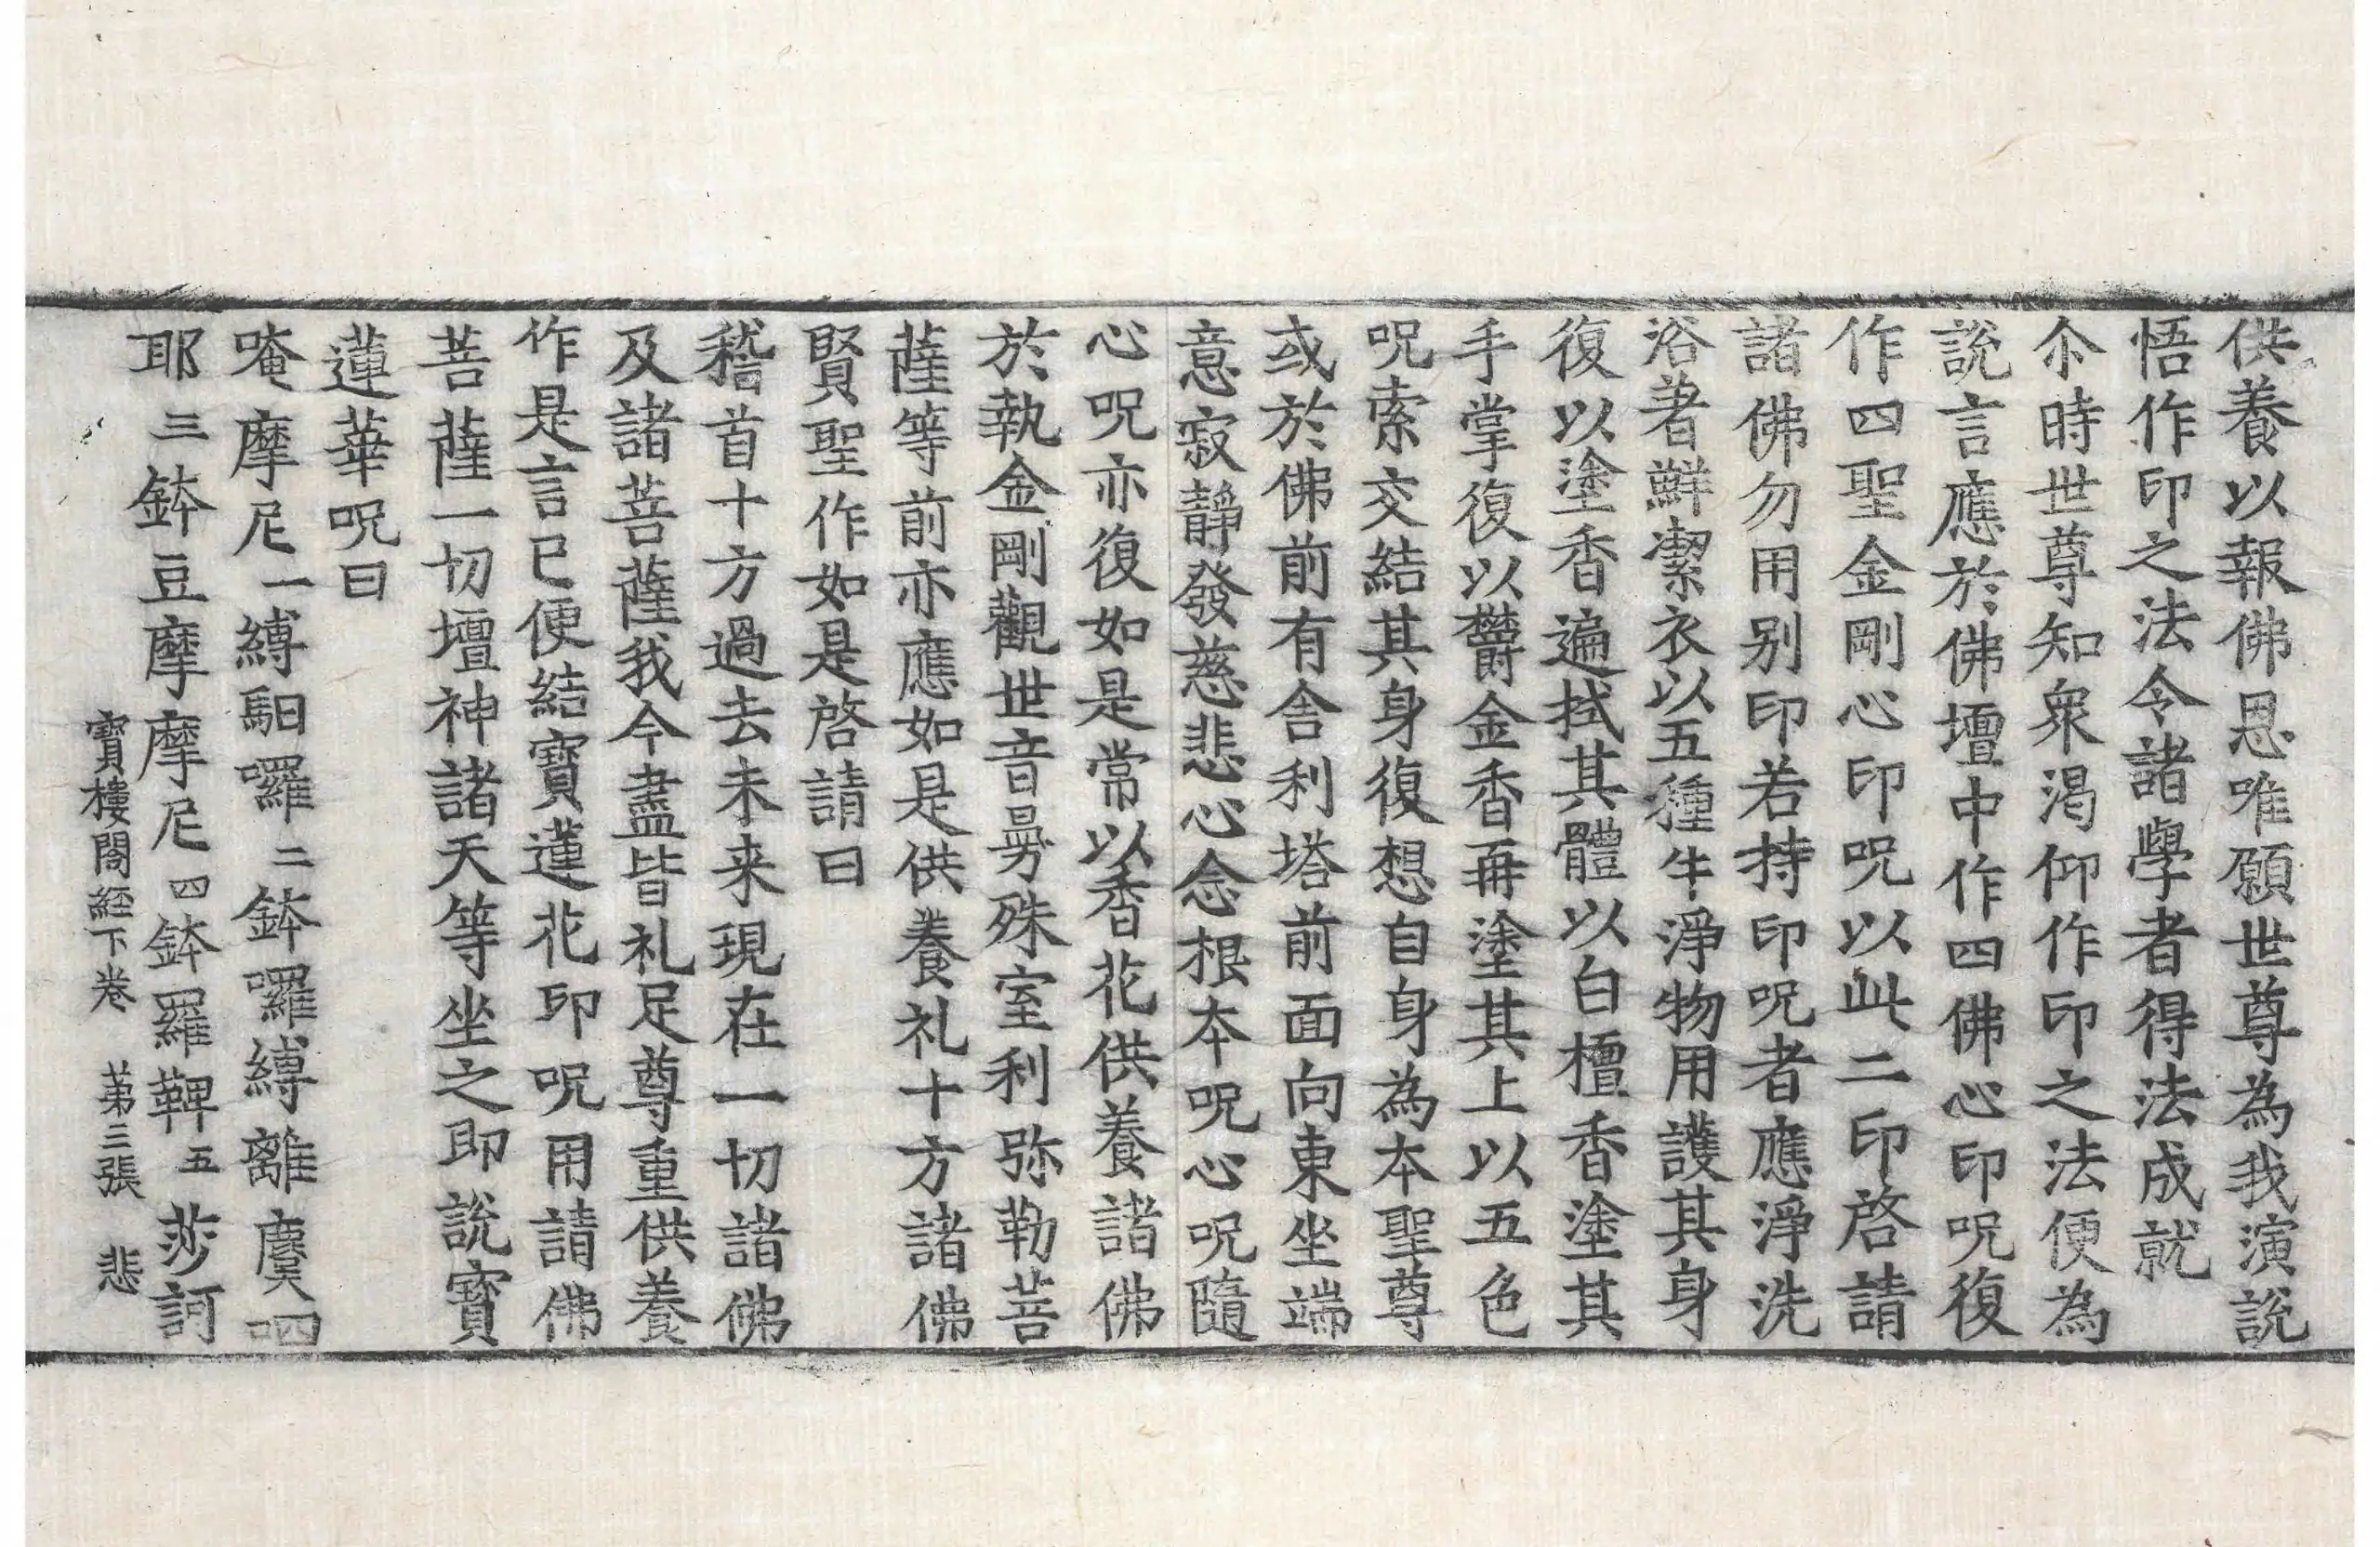 供養以報佛恩唯願世尊為我演說
悟作印之法令諸學者得法成就
尒時世尊知衆渴仰作印之法便為
說言應於佛壇中作四佛心印呪復
作四聖金剛心印呪以此二印啓請
諸佛勿用别印若持印呪者應淨洗
浴著鮮潔衣以五種牛淨物用護其身
復以塗香遍拭其體以白檀香塗其
手掌復以欝金香再塗其上以五色
呪索交結其身復想自身為本聖尊
或於佛前有舍利塔前面向東坐端
意寂靜發慈悲心念根本呪心呪隨
心呪亦復如是常以香花供養諸佛
於執金剛觀世音曼殊室利弥勒菩
薩等前亦應如是供養礼十方諸佛
賢聖作如是啓請曰
稽首十方過去未来現在一切諸佛
及諸菩薩我今盡皆礼足尊重供養
作是言已便結寶蓮花印呪用請佛
菩薩一切壇神諸天等坐之即說寶
蓮華呪曰
唵摩尼一縛馹囉二鉢囉縛離虞呬
耶三鉢豆摩摩尼四鉢羅鞞五莎訶
寶樓閣經下卷 第三張 悲